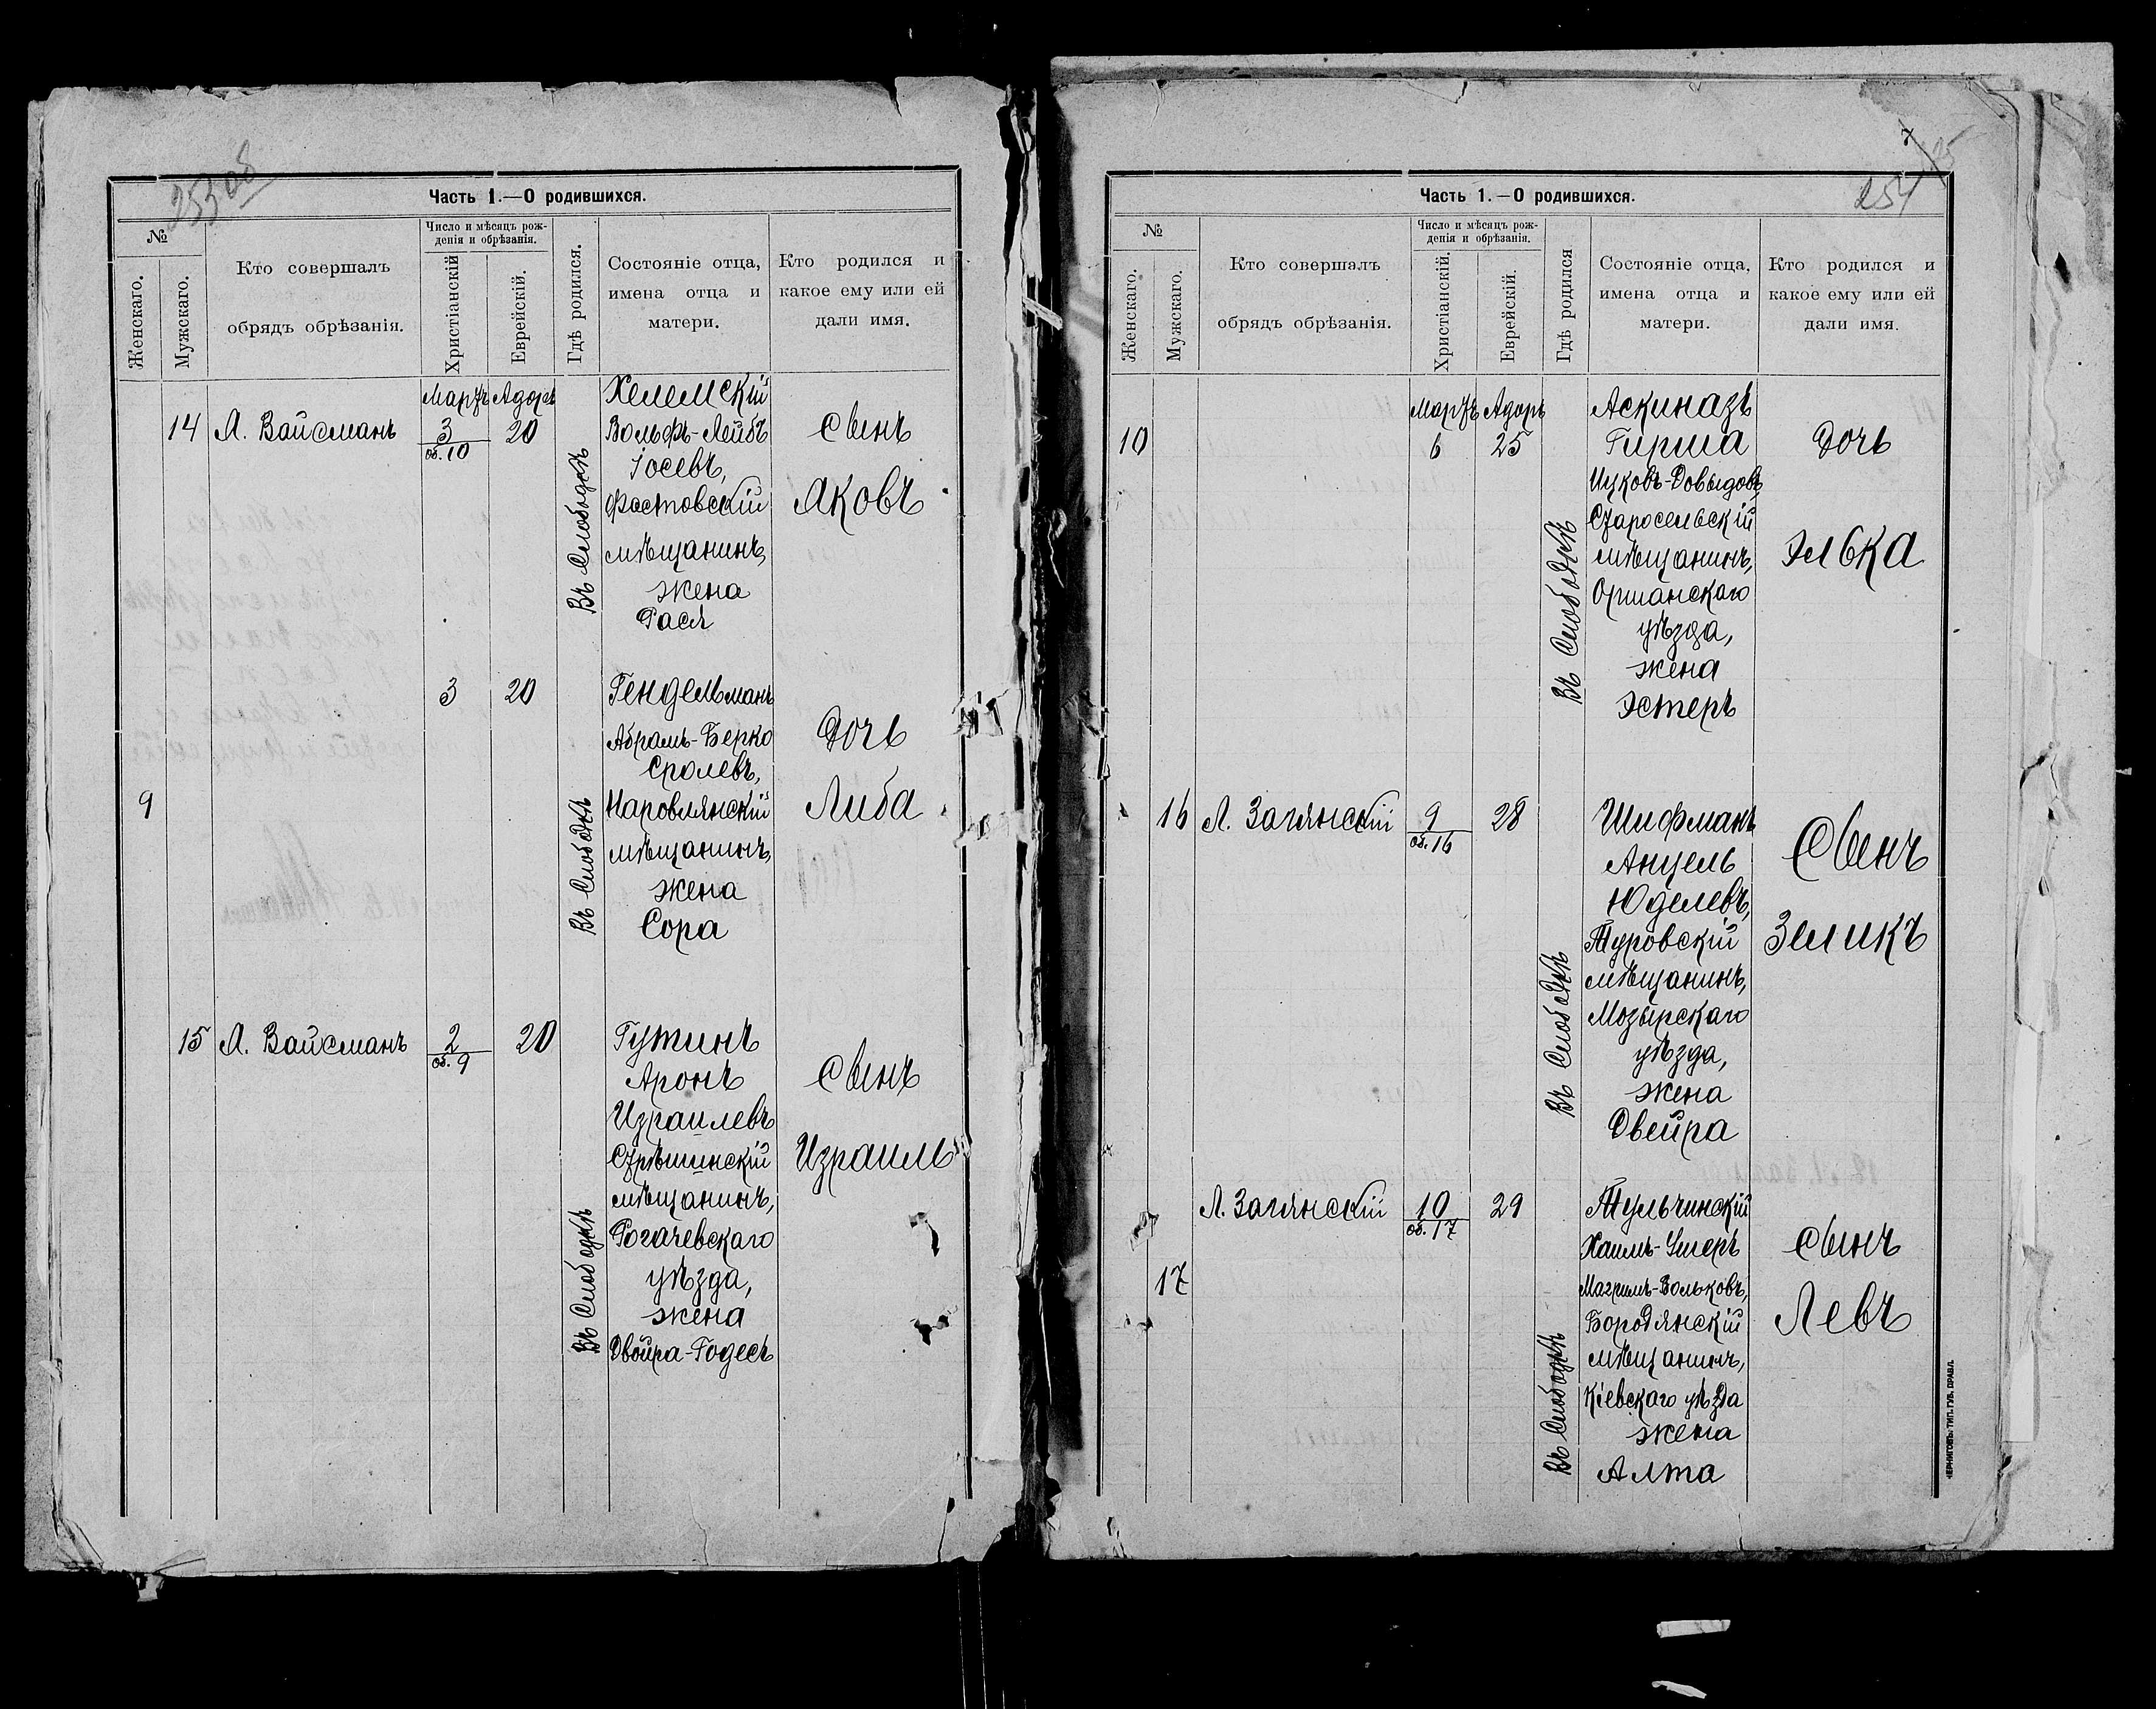 253 об
Часть 1.—О родившихся.
№
Женскаго.
Мужскаго.
Кто совершалъ
обрядъ обрѣзанія.
Число и мѣсяцъ рож-
денія и обрѣзанія.
Христіанскій
Еврейскій.
Гдѣ родился.
Состояніе отца,
имена отца и
матери.
Кто родился и
какое ему или ей
дали имя.
Мартъ Адоръ
14 Л. Вайсманъ 3 20
об. 10
Въ Слободкѣ
Хелемскій
Вольфъ-Лейбъ
Іосевъ,
Фастовскій
мѣщанинъ,
жена
Рася
Сынъ
Яковъ
9
3 20
Въ Слободкѣ
Гендельманъ
Абрамъ-Берко
Сролевъ,
Наровлянскій
мѣщанинъ,
жена
Сора
Дочь
Либа
15 Л. Вайсманъ 2 20
об. 9
Въ Слободкѣ
Гутинъ
Аронъ
Израилевъ
Стрѣшинскій
мѣщанинъ,
Рогачевскаго
уѣзда,
жена
Двойра-Годесъ
Сынъ
Израиль
7
254
Часть 1.—О родившихся.
№
Женскаго.
Мужскаго.
Кто совершалъ
обрядъ обрѣзанія.
Число и мѣсяцъ рож-
денія и обрѣзанія.
Христіанскій.
Еврейскій.
Гдѣ родился
Состояніе отца,
имена отца и
матери.
Кто родился и
какое ему или ей
дали имя.
Мартъ Адоръ
10 6 25
Въ Слободкѣ
Аскиназъ
Гирша
Ицковъ-Довыдовъ
Старосельскій
мѣщанинъ,
Оршанскаго
уѣзда,
жена
Эстеръ
Дочь
Элька
16 Л. Заглянскій 9 28
об. 16
Въ Слободкѣ
Шифманъ
Анцель
Юделевъ,
Туровскій
мѣщанинъ,
Мозырскаго
уѣзда,
жена
Двейра
Сынъ
Зеликъ
17
Л. Заглянскій 10 29
об. 17
Въ Слободкѣ
Тульчинскій
Хаимъ-Ушеръ
Бородянскій
мѣщанинъ,
Кіевскаго уѣзда
жена
Алта
Сынъ
Левъ
ЧЕРНИГОВЪ. ТИП. ГУБ. ПРАВЛ.